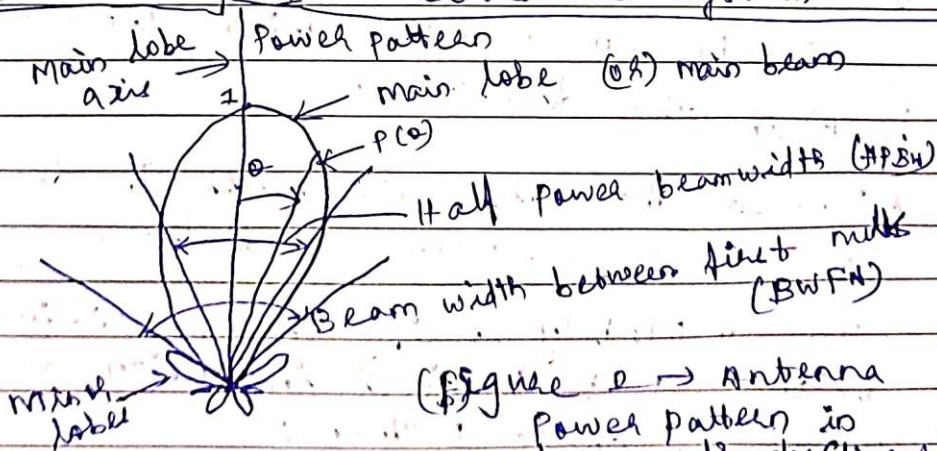 Power pattern
Main lobe axis
Main lobe (or) main beam
1
P(θ)
θ
Half power beamwidth (HPBW)
Beam width between first nulls (BWFN)
Minor lobes
(Figure : → Antenna
Power pattern in